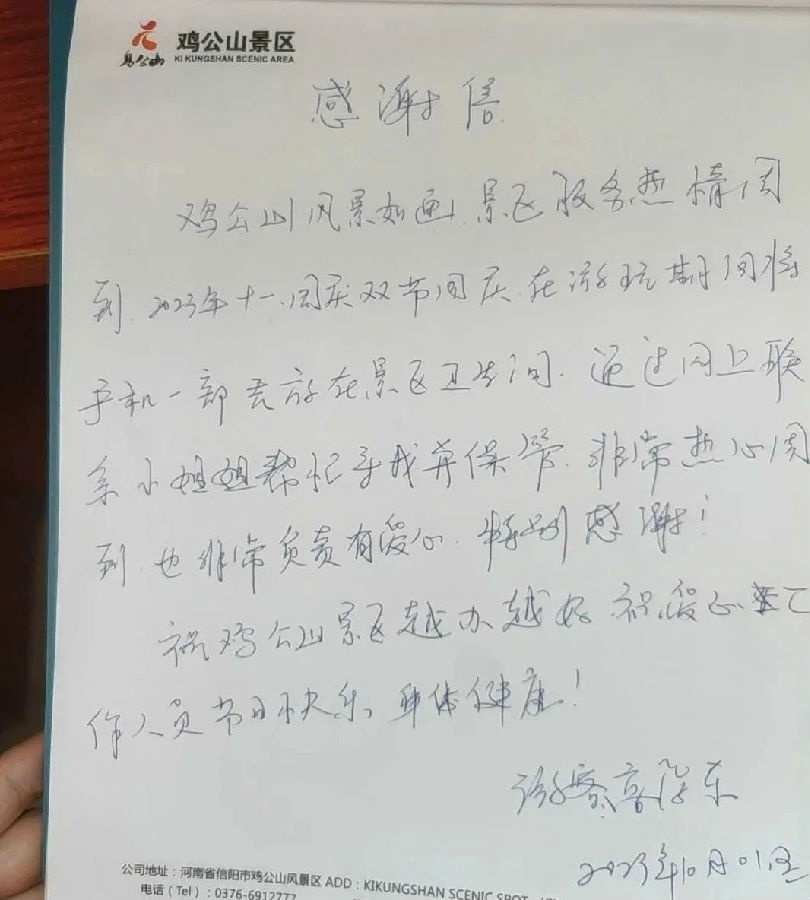 鸡公山
鸡公山景区
KI KUNGSHAN SCENIC AREA
感谢信
鸡公山风景如画，景区服务热情周
到，2023年十一国庆双节国庆，在游玩期间将
手机一部丢放在景区卫生间，通过网上联
系小姐姐帮忙寻找并保管，非常热心周
到，也非常负责有爱心，特别感谢！
祝鸡公山景区越办越好，祝爱心工
作人员节日快乐，身体健康！
游客
2023年10月01日
公司地址：河南省信阳市鸡公山风景区 ADD：KIKUNGSHAN SCENIC SPOT
电话（Tel）：0376-6912777